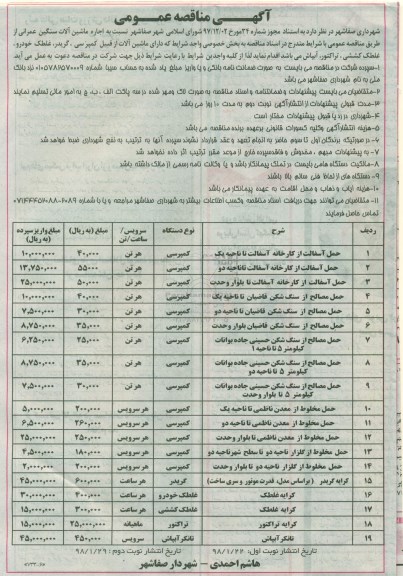 آگهی مناقصه عمومی
شهرداری صفاشهر در نظر دارد به استناد مجوز شماره ۳۲ مورخ ۹۷/۱۲/۰۲ شورای اسلامی شهر صفاشهر نسبت به اجاره ماشین آلات سنگین عمرانی از
طریق مناقصه عمومی با شرایط مندرج در اسناد مناقصه به بخش خصوصی واجد شرایط که دارای ماشین آلات از قبیل کمپرسی، گریدر، غلطک خودرو،
غلطک کششی، تراکتور، آبپاش می باشد اقدام نماید لذا از کلیه واجدین شرایط با رعایت شرایط ذیل جهت شرکت در مناقصه دعوت به عمل می آید.
۱-سپرده شرکت در مناقصه می بایست به صورت ضمانت نامه بانکی و یا واریز مبلغ یاد شده به حساب سیبا شماره ۰۱۰۵۷۸۶۵۷۰۰۰۹ نزد بانک
ملی به نام شهرداری صفاشهر می باشد
۲-متقاضیان می بایست پیشنهادات و ضمانتنامه و اسناد مناقصه به صورت لاک ومهر شده در سه پاکت الف، ب، ج به امور مالی تحلیم نمایند
۳-مدت قبولی پیشنهادات از انتشارآگهی نوبت دوم به مدت ۱۰ روز می باشد
۴-شهرداری در رد یا قبول پیشنهادات مختار است
۵-هزینه انتشارآگهی وکلیه کسورات قانونی برعهده برنده مناقصه می باشد
۶-در صورتیکه برندگان اول تا سوم حاضر به انجام تعهد و عقد قرارداد نشوند سپرده آنها به ترتیب به نفع شهرداری ضبط خواهد شد
۷-به پیشنهادات مبهم، مخدوش و فاقدسپرده خارج از موعد مقرر ترتیب اثر داده نخواهد شد
۸-مالکیت دستگاه هامی بایست در تملک پیمانکار باشد و یا وکالت نامه رسمی از مالک داشته باشد
۹-دستگاه های از لحاظ فنی سالم باشند
۱۰-هزینه ایاب و ذهاب و محل اقامت به عهده پیمانکار می باشد
۱۱-متقاضیان می توانند جهت دریافت اسناد مناقصه وکسب اطلاعات بیشتر به شهرداری صفاشهر مراجعه و یا با شماره ۰۷۱۴۴۴۵۲۰۸۸-۲۰۸۹
تماس حاصل فرمایند
ردیف شرح نوع دستگاه سرویس/ ساعت/تن مبلغ (به ریال) مبلغ واریز سپرده (به ریال)
۱ حمل آسفالت از کارخانه آسفالت تا ناحیه یک کمپرسی هر تن ۴۰،۰۰۰ ۱۰،۰۰۰،۰۰۰
۲ حمل آسفالت از کارخانه آسفالت تاناحیه دو کمپرسی هر تن ۵۵۰۰۰ ۱۳،۷۵۰،۰۰۰
۳ حمل آسفالت از کارخانه آسفالت تا بلوار وحدت کمپرسی هر تن ۵۰،۰۰۰ ۲۵،۰۰۰،۰۰۰
۴ حمل مصالح از سنگ شکن قاضیان تا ناحیه یک کمپرسی هر تن ۴۰،۰۰۰ ۱۰،۰۰۰،۰۰۰
۵ حمل مصالح از سنگ شکن قاضیان تا ناحیه دو کمپرسی هر تن ۳۰،۰۰۰ ۷،۵۰۰،۰۰۰
۶ حمل مصالح از سنگ شکن قاضیان بلوار وحدت کمپرسی هر تن ۳۵،۰۰۰ ۸،۷۵۰،۰۰۰
۷ حمل مصالح از سنگ شکن حسینی جاده بوانات کیلومتر ۵ تا ناحیه ۱ کمپرسی هر تن ۲۵،۰۰۰ ۶،۲۵۰،۰۰۰
۸ حمل مصالح از سنگ شکن حسینی جاده بوانات کیلومتر ۵ تا ناحیه دو کمپرسی هر تن ۳۵،۰۰۰ ۸،۷۵۰،۰۰۰
۹ حمل مصالح از سنگ شکن حسینی جاده بوانات کیلومتر ۵ تا بلوار وحدت کمپرسی هر تن ۳۰،۰۰۰ ۷،۵۰۰،۰۰۰
۱۰ حمل مخلوط از معدن ناظمی تا ناحیه یک کمپرسی هر سرویس ۲۰۰،۰۰۰ ۵،۰۰۰،۰۰۰
۱۱ حمل مخلوط از معدن ناظمی تا ناحیه دو کمپرسی هر سرویس ۲۶۰،۰۰۰ ۶،۵۰۰،۰۰۰
۱۲ حمل مخلوط از معدن ناظمی تا بلوار وحدت کمپرسی هر سرویس ۲۵۰،۰۰۰ ۲۵،۰۰۰،۰۰۰
۱۳ حمل مخلوط از گلزار ناحیه دو تا سطح شهرناحیه دو کمپرسی هر سرویس ۱۸۰،۰۰۰ ۴،۵۰۰،۰۰۰
۱۴ حمل مخلوط از گلزار ناحیه دو تا بلوار وحدت کمپرسی هر سرویس ۲۰۰،۰۰۰ ۲،۰۰۰،۰۰۰
۱۵ کرایه گریدر (براساس مدل، قدرت موتور و سری ساخت) گریدر هر ساعت ۶۰۰،۰۰۰ ۴۵،۰۰۰،۰۰۰
۱۶ کرایه غلطک غلطک خودرو هر ساعت ۴۰۰،۰۰۰ ۳۰،۰۰۰،۰۰۰
۱۷ کرایه غلطک غلطک کششی هر ساعت ۳۰۰،۰۰۰ ۱۵،۰۰۰،۰۰۰
۱۸ کرایه تراکتور تراکتور ماهیانه ۲۵،۰۰۰،۰۰۰ ۱۵،۰۰۰،۰۰۰
۱۹ تانکر آبپاش تانکر آبپاش سرویس ۴۵۰،۰۰۰ ۴۵،۰۰۰،۰۰۰
تاریخ انتشار نوبت اول: ۹۸/۱/۲۲ تاریخ انتشار نوبت دوم: ۹۸/۱/۲۹
هاشم احمدی – شهردار صفاشهر